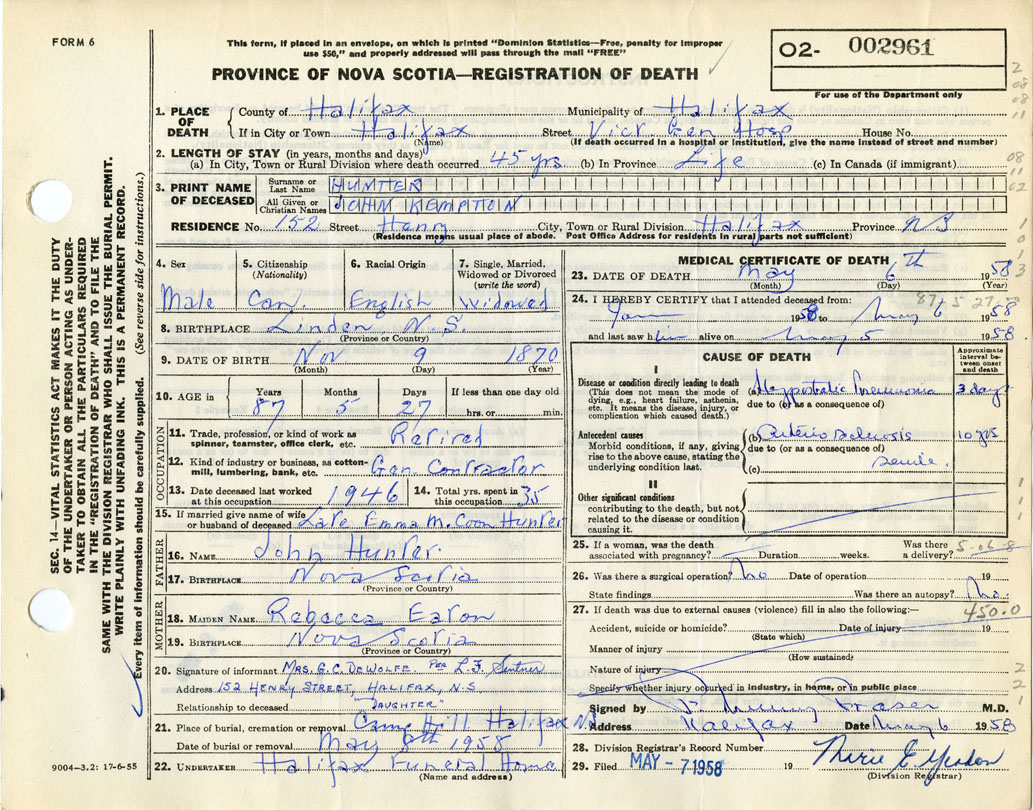 FORM 6
This form, if placed in an envelope, on which is printed "Dominion Statistics—Free, penalty for improper
use $50," and properly addressed will pass through the mail "FREE"
PROVINCE OF NOVA SCOTIA—REGISTRATION OF DEATH
O2- 002961
For use of the Department only
SEC. 14—VITAL STATISTICS ACT MAKES IT THE DUTY
OF THE UNDERTAKER OR PERSON ACTING AS UNDER-
TAKER TO OBTAIN ALL THE PARTICULARS REQUIRED
IN THE "REGISTRATION OF DEATH" AND TO FILE THE
SAME WITH THE DIVISION REGISTRAR WHO SHALL ISSUE THE BURIAL PERMIT.
WRITE PLAINLY WITH UNFADING INK. THIS IS A PERMANENT RECORD.
Every item of information should be carefully supplied. (See reverse side for instructions.)
1. PLACE OF DEATH
County of Halifax Municipality of Halifax
If in City or Town Halifax Street Vict. Gen Hosp House No.
(Name) (If death occurred in a hospital or institution, give the name instead of street and number)
2. LENGTH OF STAY (in years, months and days)
(a) In City, Town or Rural Division where death occurred 45 yrs (b) In Province Life (c) In Canada (if immigrant)
3. PRINT NAME OF DECEASED
Surname or Last Name HUNTER
All Given or Christian Names JOHN KEMPTON
RESIDENCE No. 152 Street Henry City, Town or Rural Division Halifax Province NS
(Residence means usual place of abode. Post Office Address for residents in rural parts not sufficient)
4. Sex Male
5. Citizenship (Nationality) Can.
6. Racial Origin English
7. Single, Married, Widowed or Divorced (write the word) Widowed
8. BIRTHPLACE Linden N.S.
(Province or Country)
9. DATE OF BIRTH Nov 9 1870
(Month) (Day) (Year)
10. AGE in Years Months Days If less than one day old
87 5 27 hrs. or min.
OCCUPATION
11. Trade, profession, or kind of work as
spinner, teamster, office clerk, etc. Retired
12. Kind of industry or business, as cotton-
mill, lumbering, bank, etc. Gen Contractor
13. Date deceased last worked at this occupation 1946
14. Total yrs. spent in this occupation 35
15. If married give name of wife
or husband of deceased Late Emma M. Coon Hunter
FATHER
16. NAME John Hunter
17. BIRTHPLACE Nova Scotia
(Province or Country)
MOTHER
18. MAIDEN NAME Rebecca Eaton
19. BIRTHPLACE Nova Scotia
(Province or Country)
20. Signature of informant MRS. G. C. DEWOLFE Per L.F.
Address 152 HENRY STREET, HALIFAX, N.S
Relationship to deceased "DAUGHTER"
21. Place of burial, cremation or removal Camp Hill Halifax NS
Date of burial or removal May 8th 1958
22. UNDERTAKER Halifax Funeral Home
(Name and address)
9004—3.2: 17-6-55
MEDICAL CERTIFICATE OF DEATH
23. DATE OF DEATH May 6th 1958
(Month) (Day) (Year)
24. I HEREBY CERTIFY that I attended deceased from: 87 5 27
Jan 1958 to May 6 1958
and last saw him alive on May 5 1958
CAUSE OF DEATH
Approximate interval between onset and death
I
Disease or condition directly leading to death
(This does not mean the mode of
dying, e.g., heart failure, asthenia,
etc. It means the disease, injury, or
complication which caused death.)
(a) Hypostatic Pneumonia 3 days
due to (or as a consequence of)
Antecedent causes
Morbid conditions, if any, giving
rise to the above cause, stating the
underlying condition last.
(b) Arteriosclerosis 10 yrs
due to (or as a consequence of)
(c) senile.
II
Other significant conditions
contributing to the death, but not
related to the disease or condition
causing it.
25. If a woman, was the death
associated with pregnancy? Duration weeks. Was there a delivery?
26. Was there a surgical operation? No Date of operation 19
State findings Was there an autopsy? No.
27. If death was due to external causes (violence) fill in also the following:— 450.0
Accident, suicide or homicide? Date of injury 19
(State which)
Manner of injury
(How sustained)
Nature of injury
Specify whether injury occurred in industry, in home, or in public place
Signed by Murray Fraser M.D.
Address Halifax Date May 6 1958
28. Division Registrar's Record Number
29. Filed MAY - 7 1958 19
(Division Registrar)